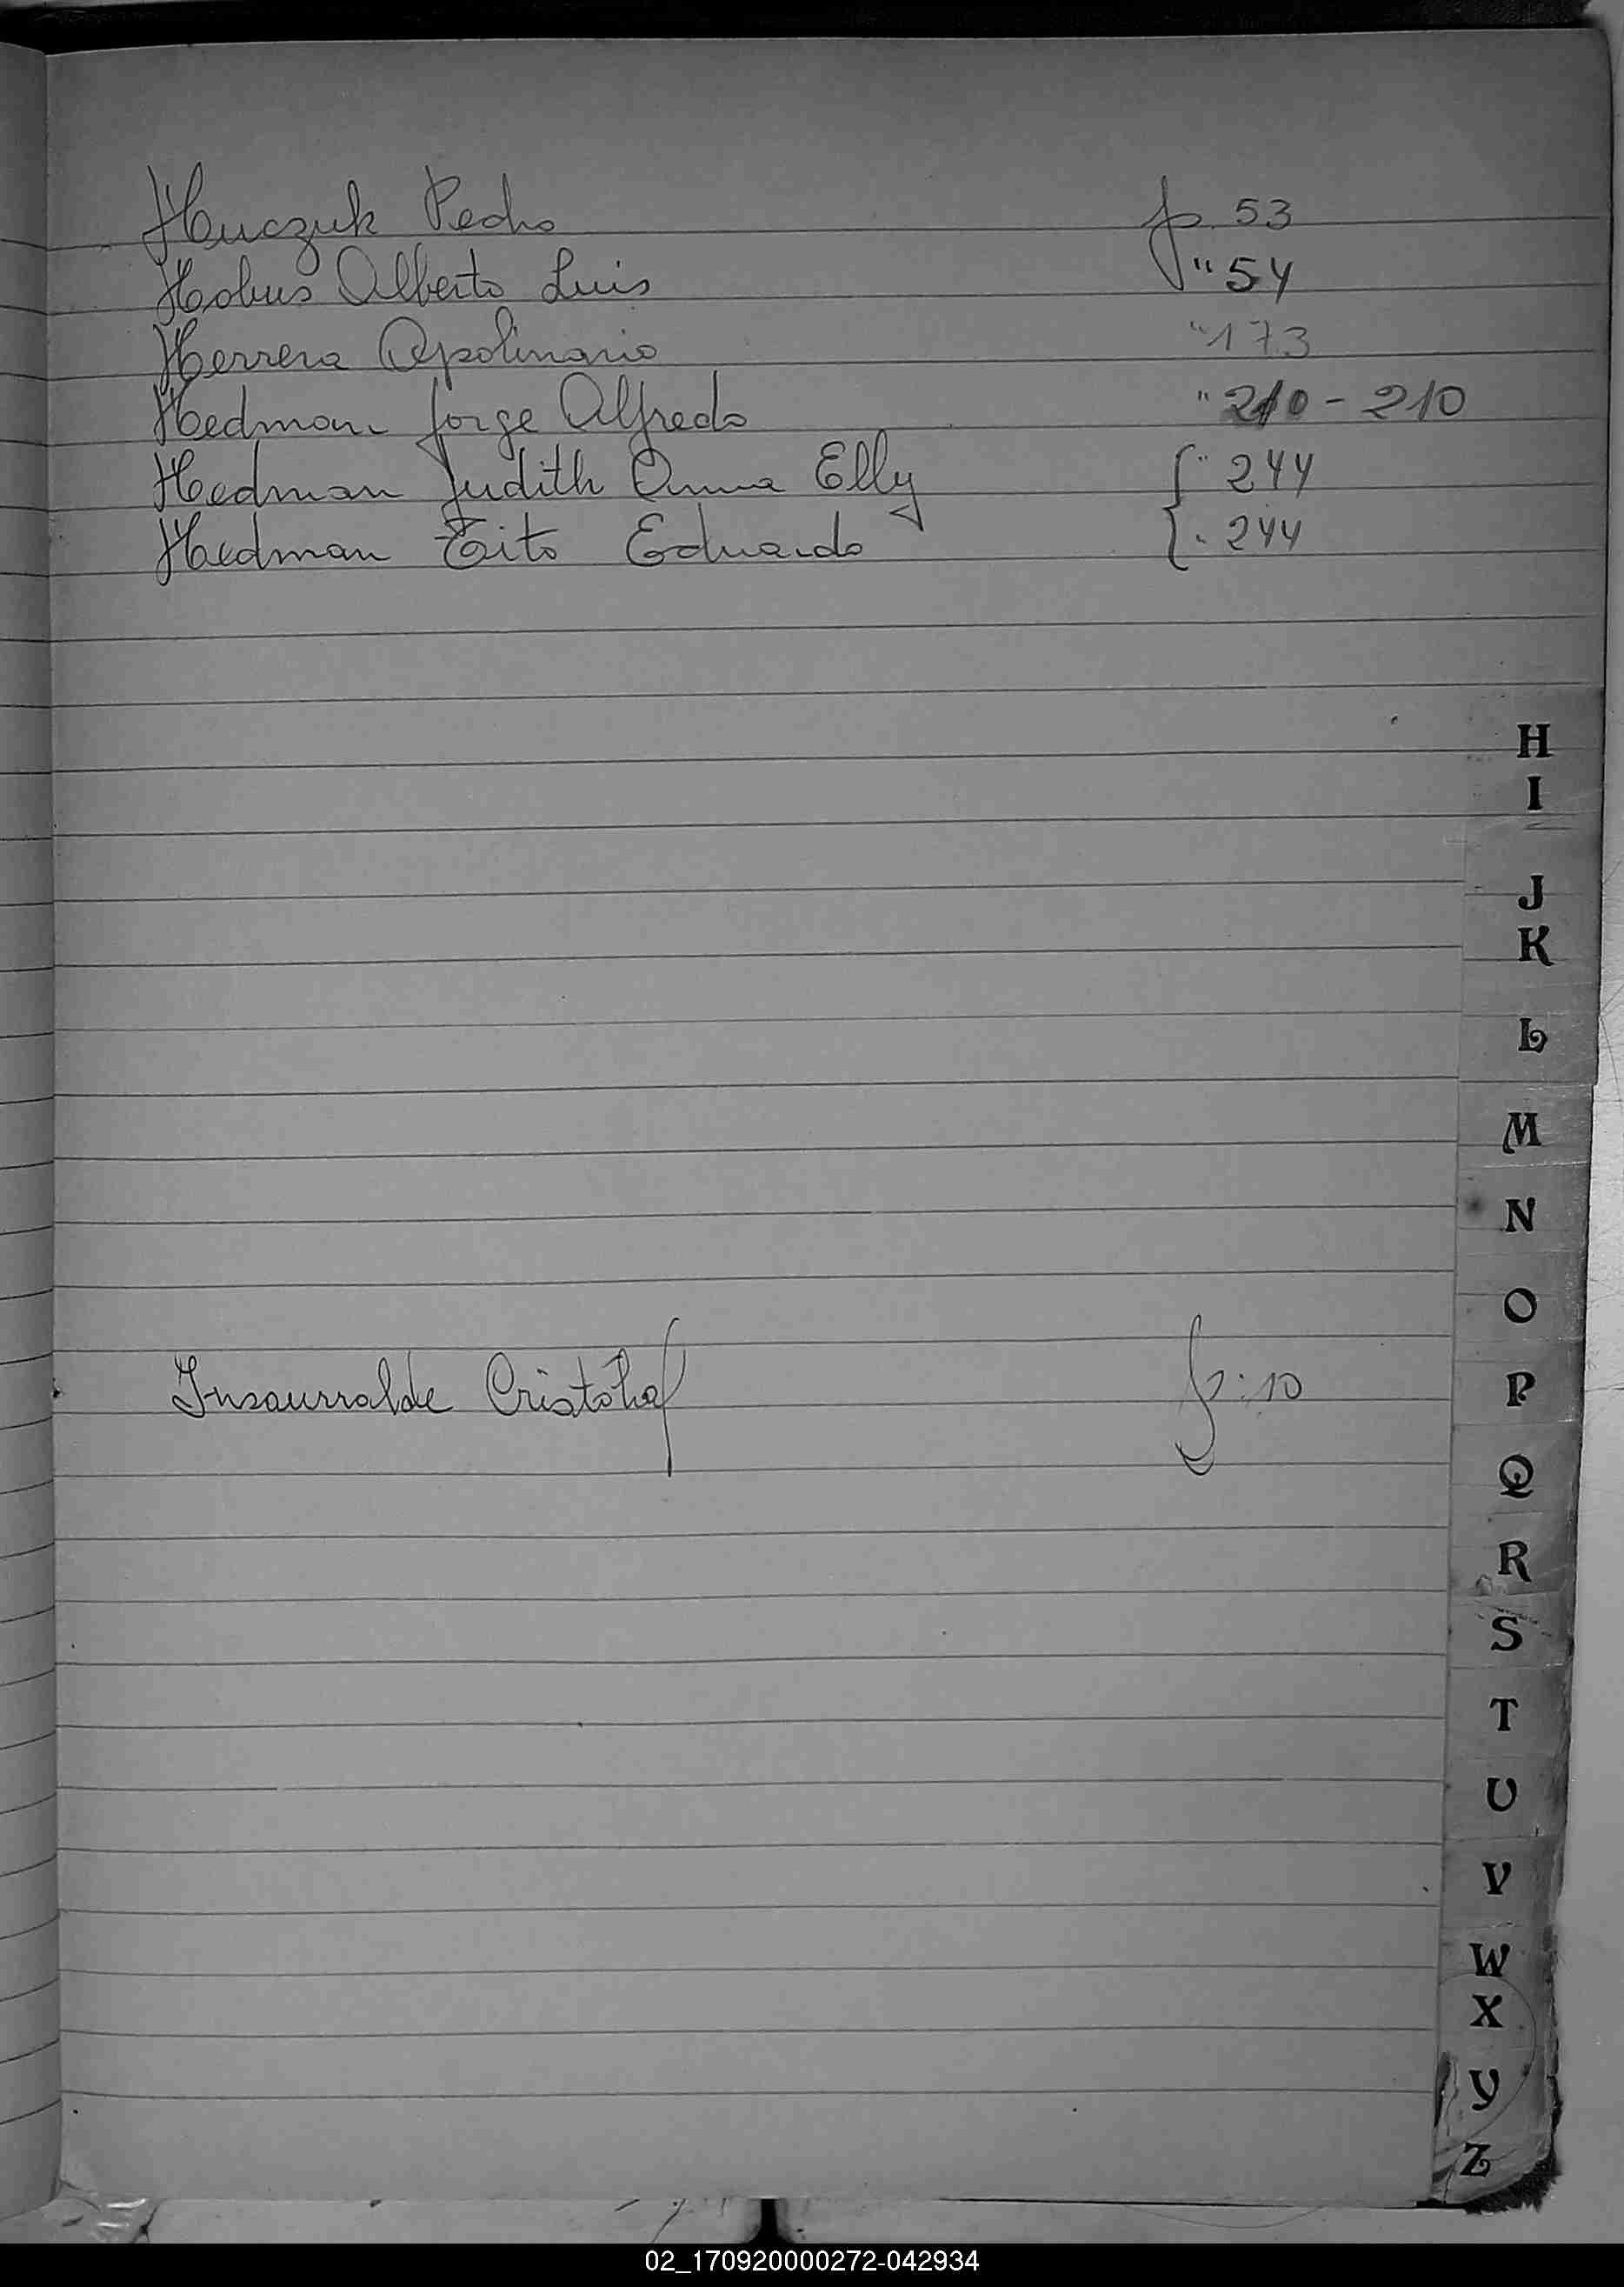 Hruczuk Pedro p. 53
Hobus Alberto Luis " 54
Herrera Apolinario " 173
Hedman Jorge Alfredo " 210 - 210
Hedman Judith Anna Elly " 244
Hedman Tito Eduardo " 244
H
I
J
K
L
M
N
O
Insaurralde Cristóbal p: 10
P
Q
R
S
T
U
V
W
X
Y
Z
02_170920000272-042934